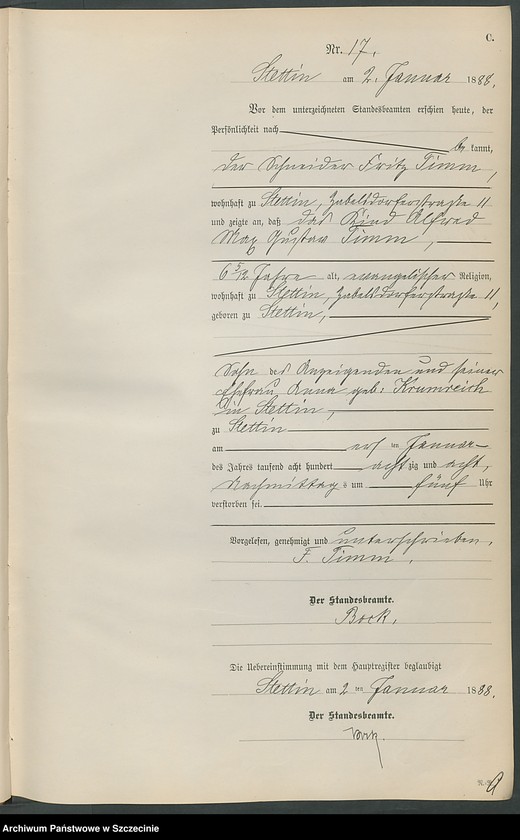 C.
Nr. 17.
Stettin am 2. Januar 1888.
Vor dem unterzeichneten Standesbeamten erschien heute, der
Persönlichkeit nach
be kannt,
der Schneider Fritz Timm,
wohnhaft zu Stettin, Zabelsdorferstraße 11
und zeigte an, daß das Kind Alfred
Max Gustav Timm,
6 5/12 Jahre alt, evangelischer Religion,
wohnhaft zu Stettin, Zabelsdorferstraße 11,
geboren zu Stettin,
Sohn des Anzeigenden und seiner
Ehefrau Anna geb: Krumreich
in Stettin,
zu Stettin
am ersten Januar
des Jahres tausend acht hundert achtzig und acht,
Nachmittags um fünf Uhr
verstorben sei.
Vorgelesen, genehmigt und unterschrieben.
F. Timm.
Der Standesbeamte.
Bock.
Die Uebereinstimmung mit dem Hauptregister beglaubigt
Stettin am 2ten Januar 1888.
Der Standesbeamte.
Bock.
Archiwum Państwowe w Szczecinie